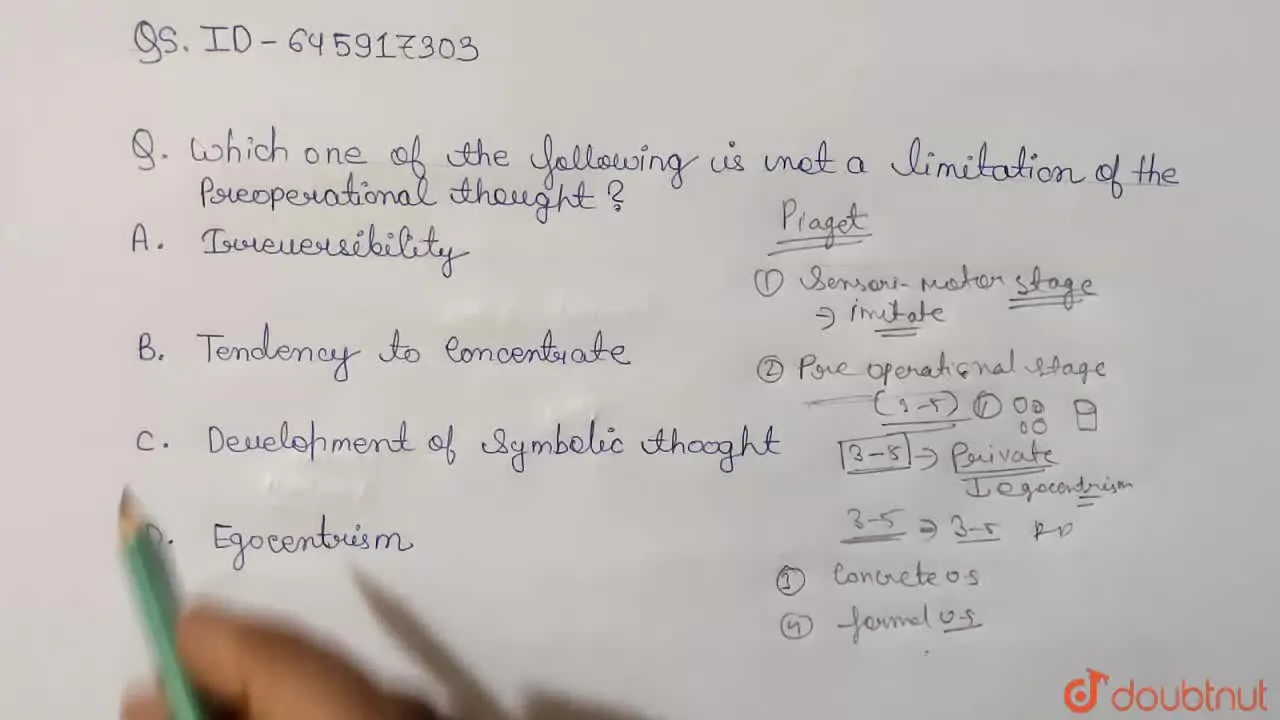 QS. ID - 645917303
Q. Which one of the following is not a limitation of the
Preoperational thought ?
A. Irreversibility
B. Tendency to Concentrate
C. Development of Symbolic thooght
D. Egocentrism
Piaget
① Sensori-motor stage
→ imitate
② Pre operational stage
3-5 → Private
Egocentrism
3-5 → 3-5
③ Concrete O S
④ formal O-S
doubtnut